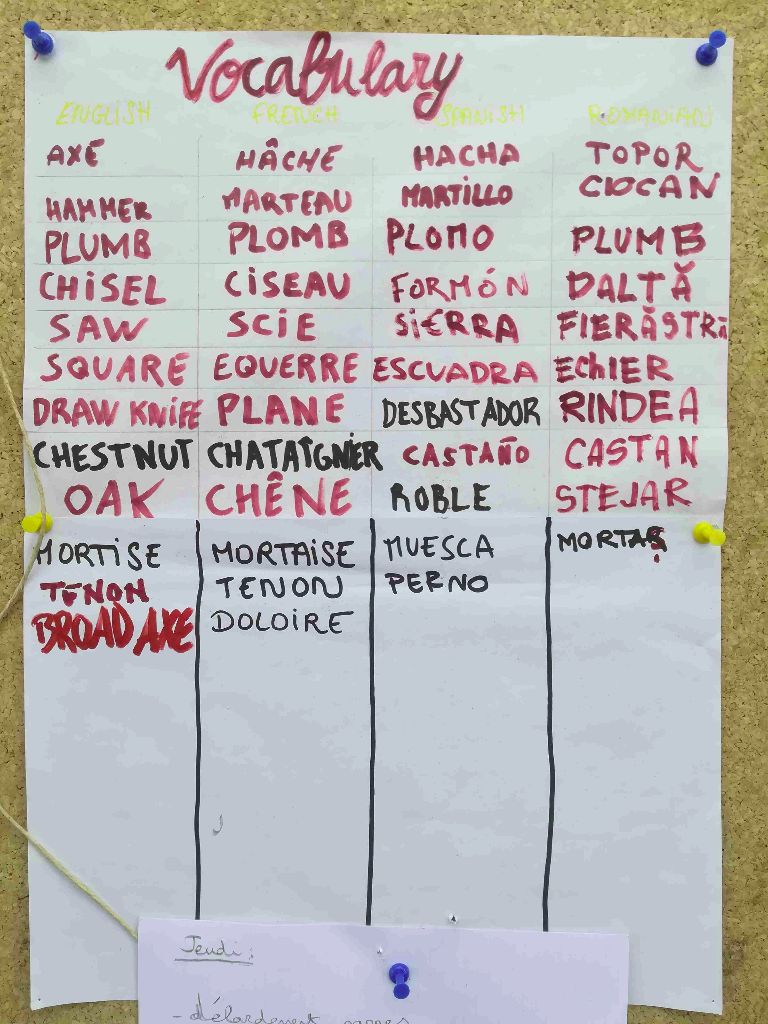 Vocabulary
ENGLISH FRENCH SPANISH ROMANIAN
AXE HÂCHE HACHA TOPOR
HAMMER MARTEAU MARTILLO CIOCAN
PLUMB PLOMB PLOMO PLUMB
CHISEL CISEAU FORMÓN DALTĂ
SAW SCIE SIERRA FIERĂSTRĂ
SQUARE EQUERRE ESCUADRA EChIER
DRAW KNIFE PLANE DESBASTADOR RINDEA
CHESTNUT CHATAÎGNIER CASTAÑO CASTAN
OAK CHÊNE ROBLE STEJAR
MORTISE MORTAISE MUESCA MORTAȘ
TENON TENON PERNO
BROAD AXE DOLOIRE
Jeudi:
- délardement